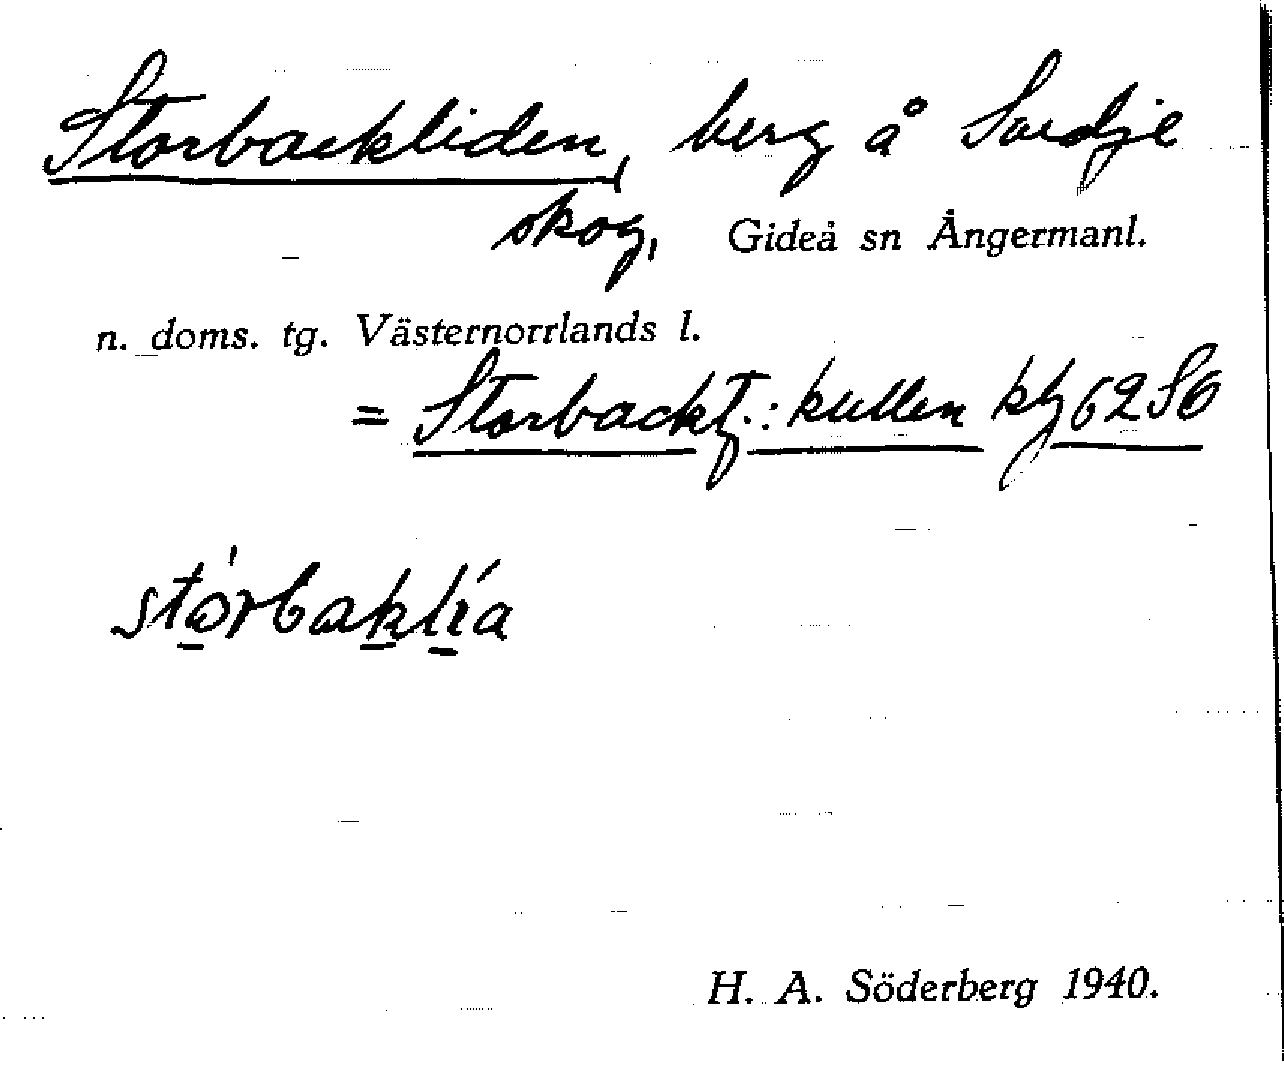 Storbackliden, berg å Saidje
skog, Gideå sn Ångermanl.
n. doms. tg. Västernorrlands l.
= Storbackt.:kullen kbl 62 S6
storbaklia
H. A. Söderberg 1940.